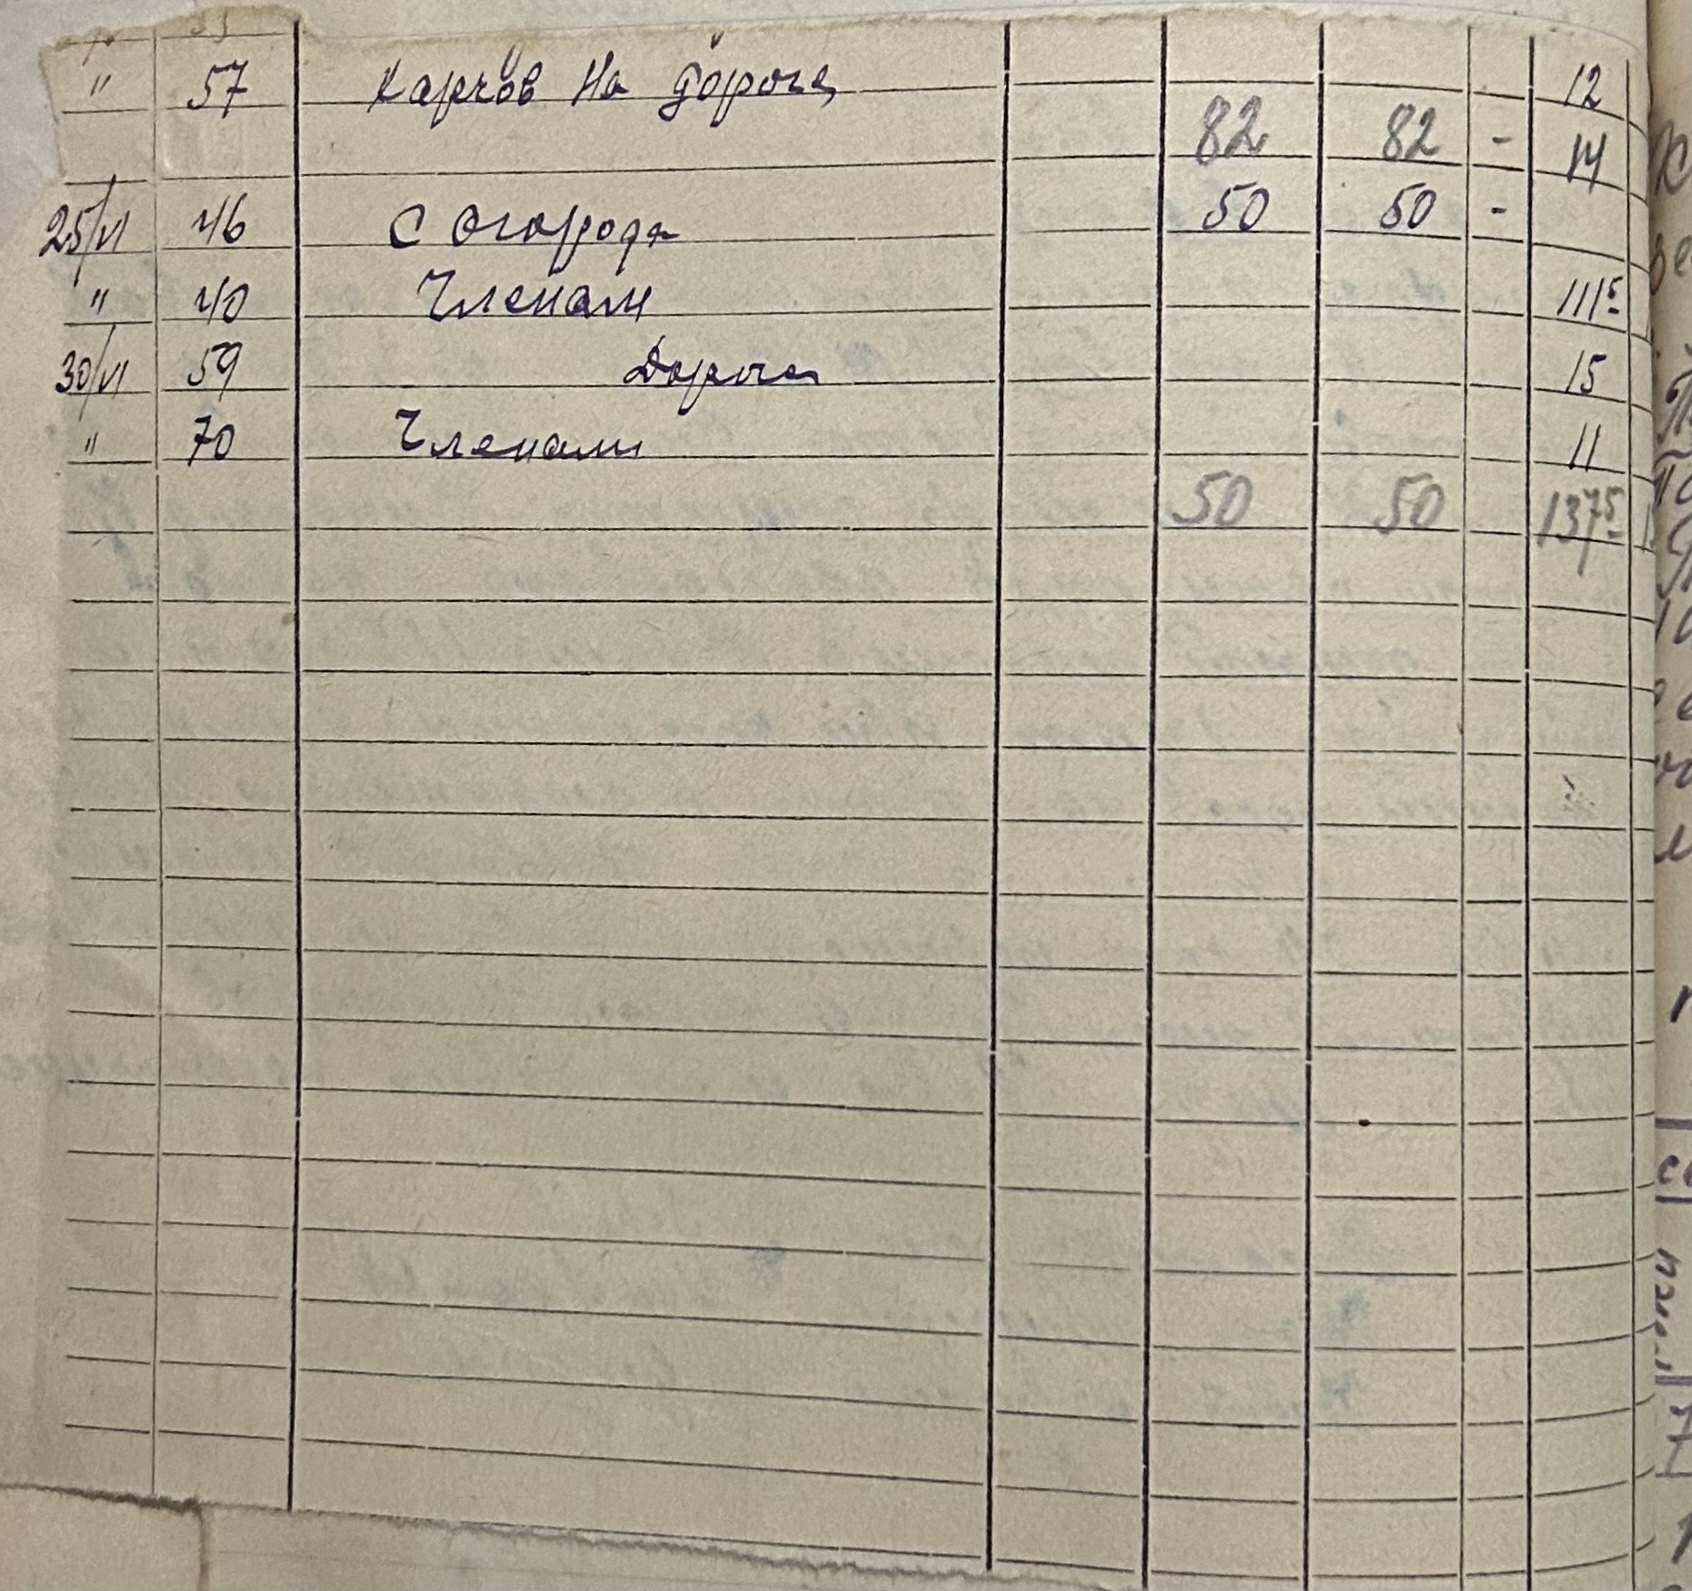 " 57 на дороге 12
82 82 - 14
25/VI 46 С огорода 50 50 -
" 40 Членам 111⁵
30/VI 59 Дороге 15
" 70 Членам 11
50 50 137⁵